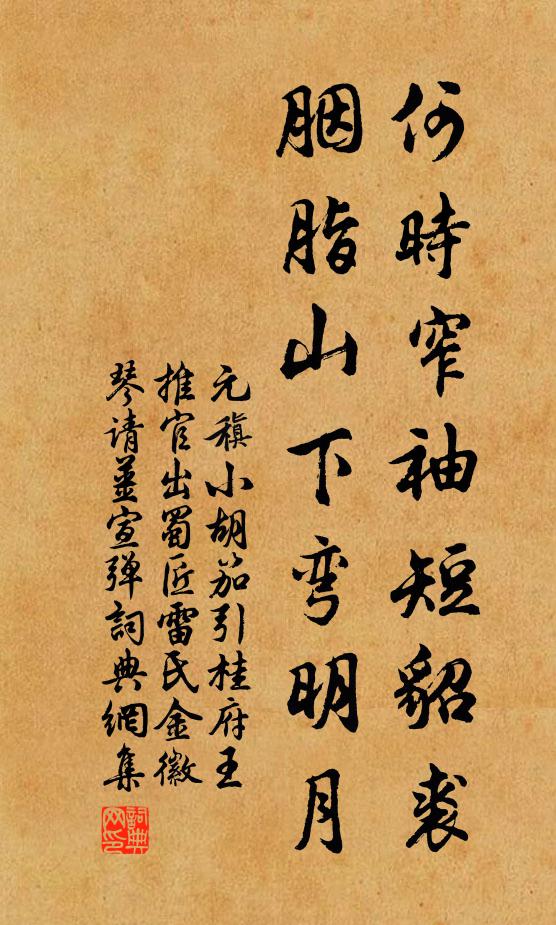 何時窄袖短貂裘
胭脂山下弯明月
元稹小胡笳引桂府王
推官出蜀匠雷氏金徽
琴请薑宣弹詞典網集
詞典网印